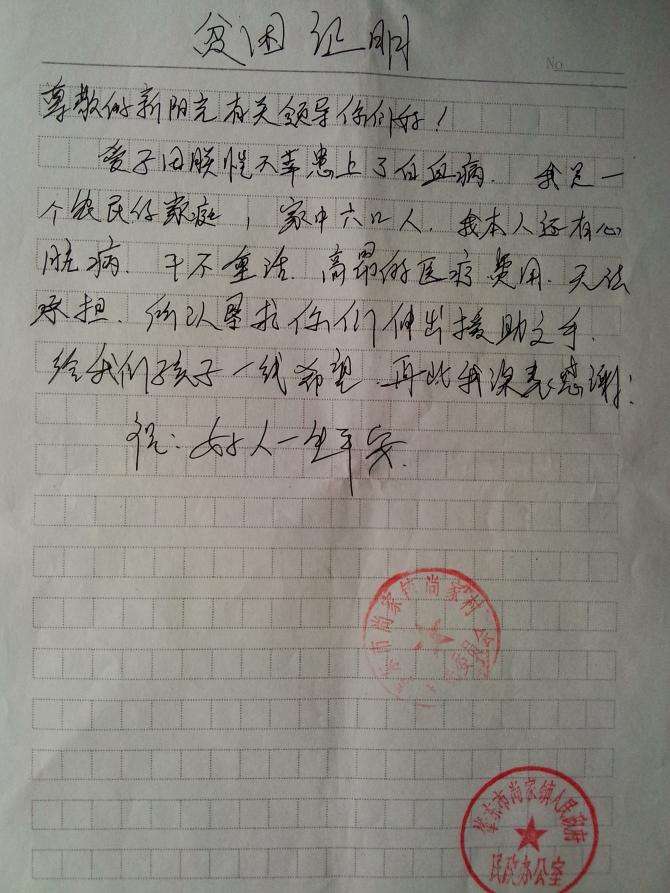 贫困证明
No
尊敬的新阳光有关领导你们好！
爱子田不幸患上了白血病. 我是一
个农民仔家庭, 家中六口人. 我本人还有心
脏病. 干不重活. 高昂的医疗费用. 无法
承担. 所以恳求你们伸出援助之手.
给我们孩子一线希望. 再此我深表感谢:
祝: 好人一生平安.
东市尚家镇尚家村
肇东市尚家镇人民政府
民政办公室